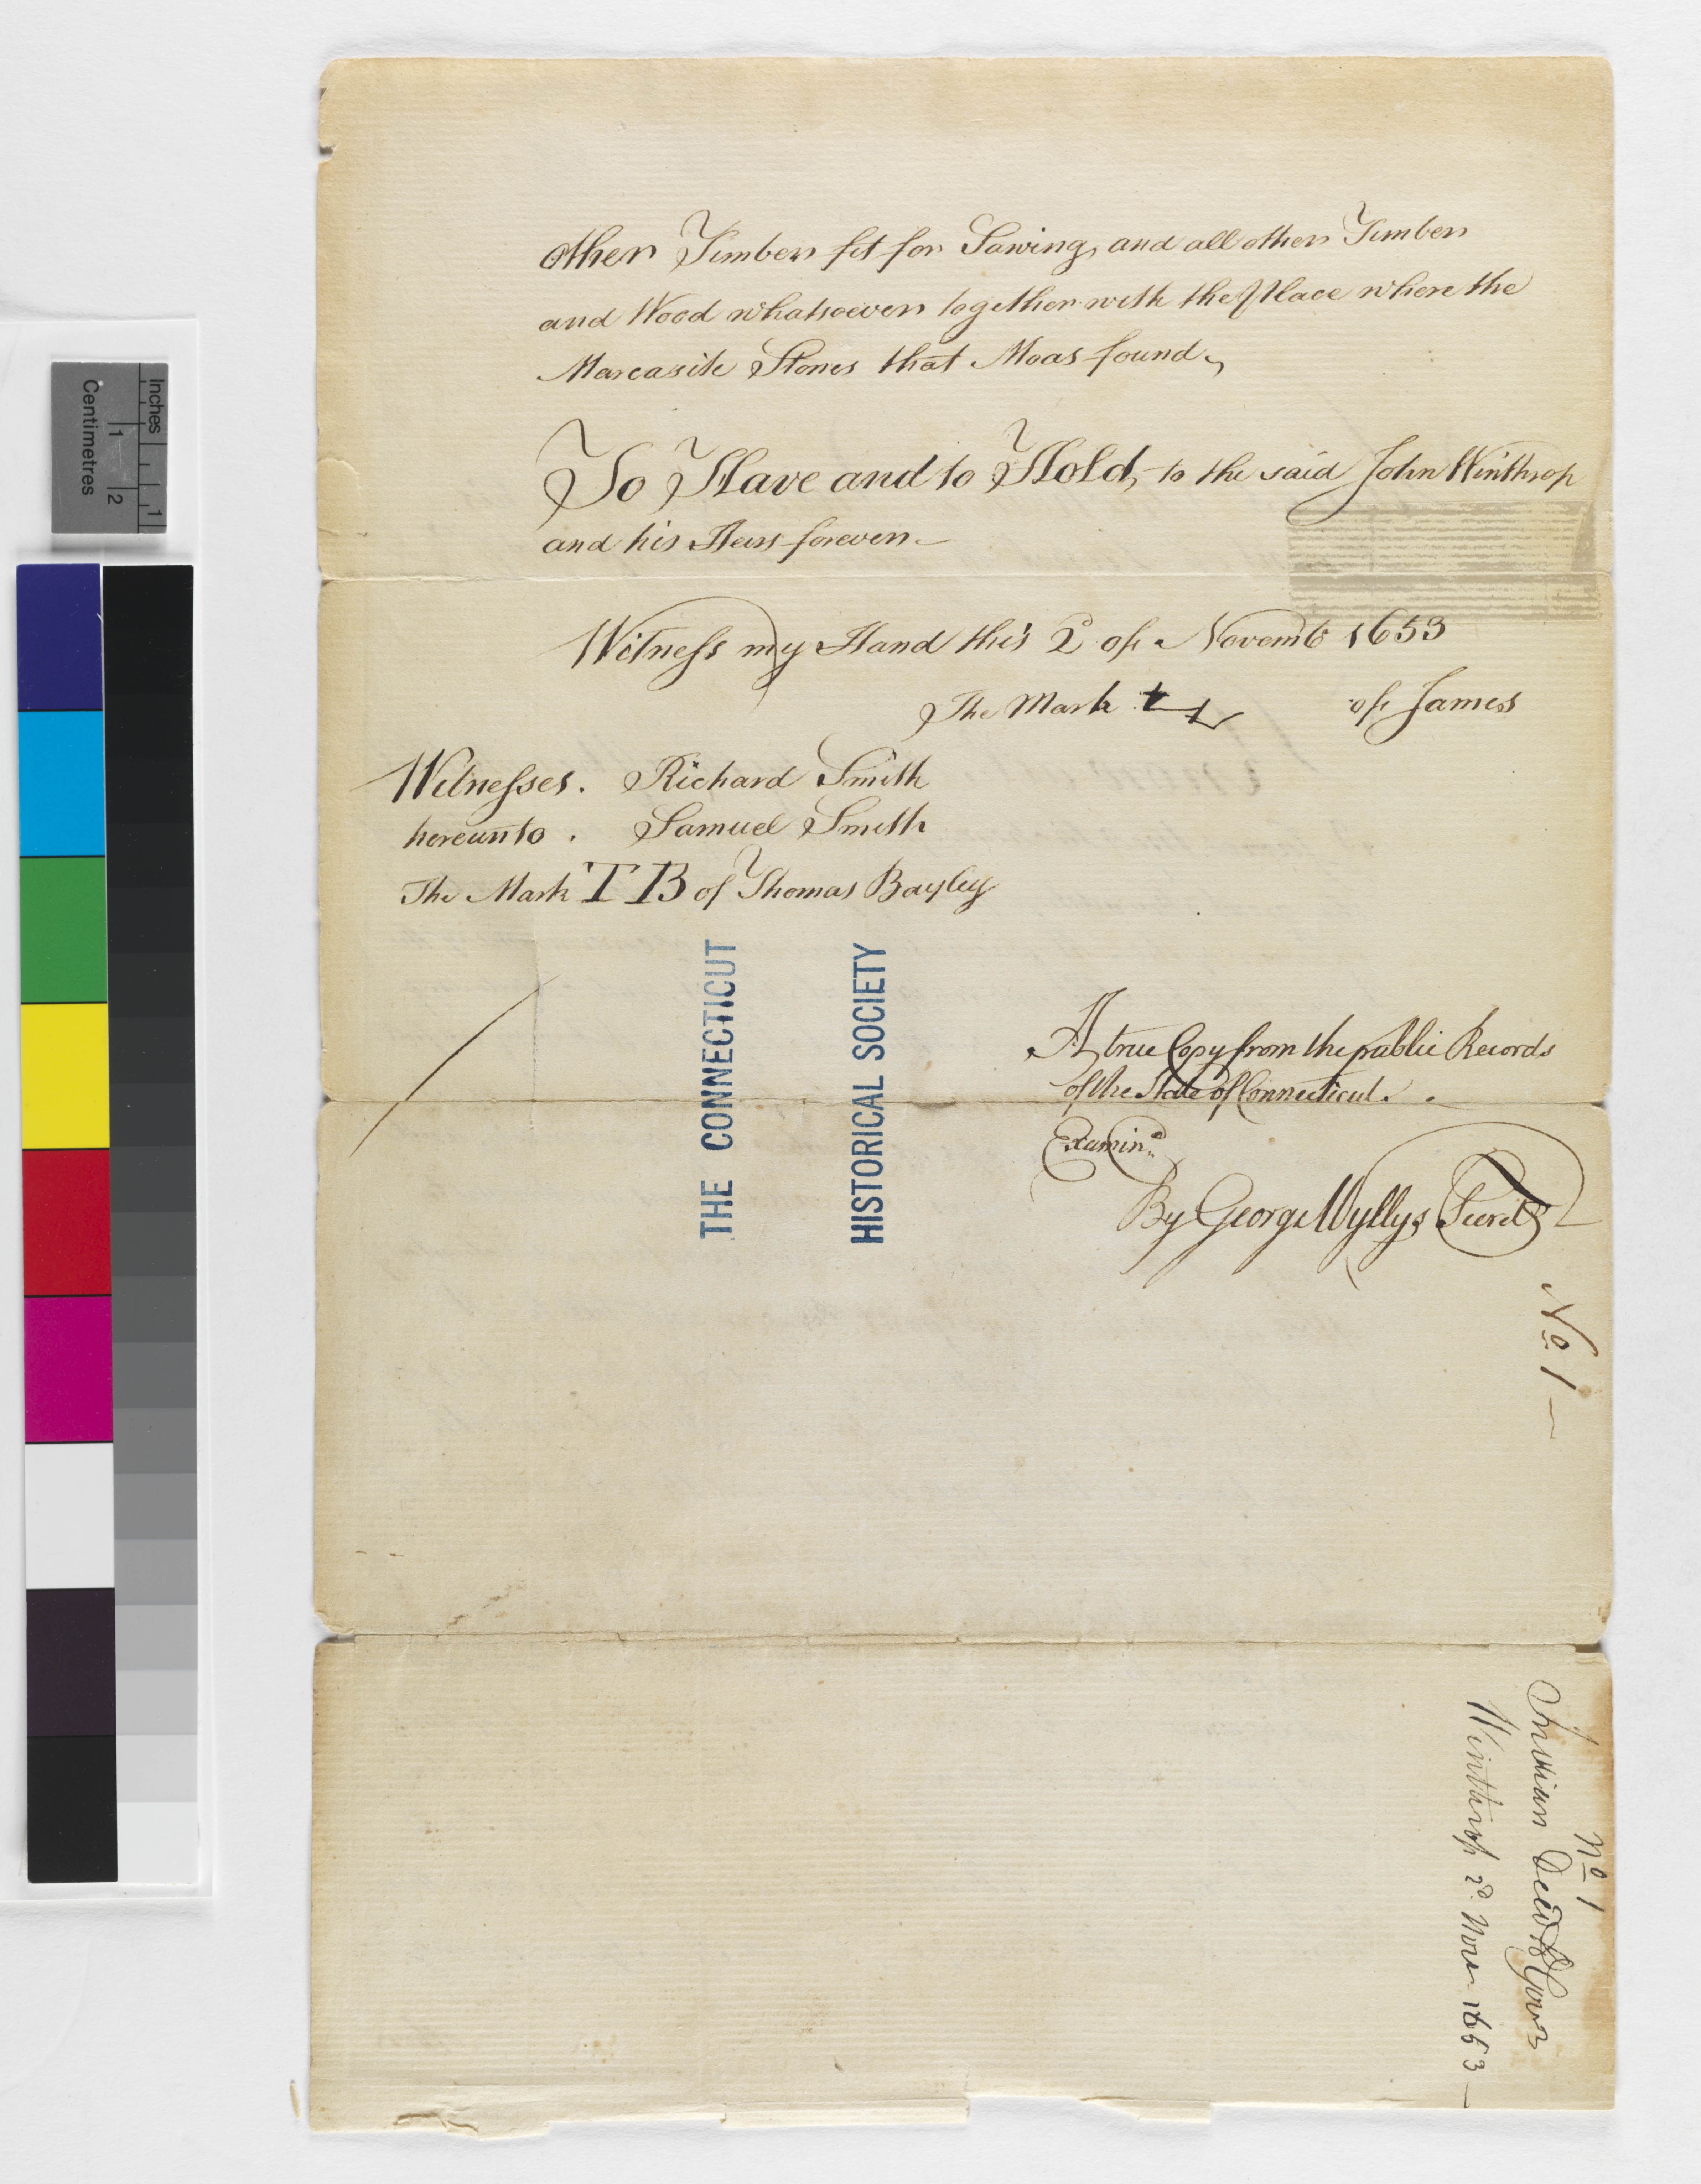 other Timber fit for Sawing, and all other Timber
and Wood whatsoever together with the Place where the
Marcasite Stones that Moas found,
To Have and to Hold, to the said John Winthrop
and his Heirs forever.
Witness my Hand this 2d of Novembr 1653
The Mark of James
Witnesses. Richard Smith
hereunto. Samuel Smith
The Mark TB of Thomas Bayley
A true Copy from the public Records
of the State of Connecticut.
Examind
By George Wyllys Secrety
THE CONNECTICUT
HISTORICAL SOCIETY
No 1
No 1
Indian Deed to Govr
Winthrop 2d Novr 1653
Inches
1
1
2
Centimetres